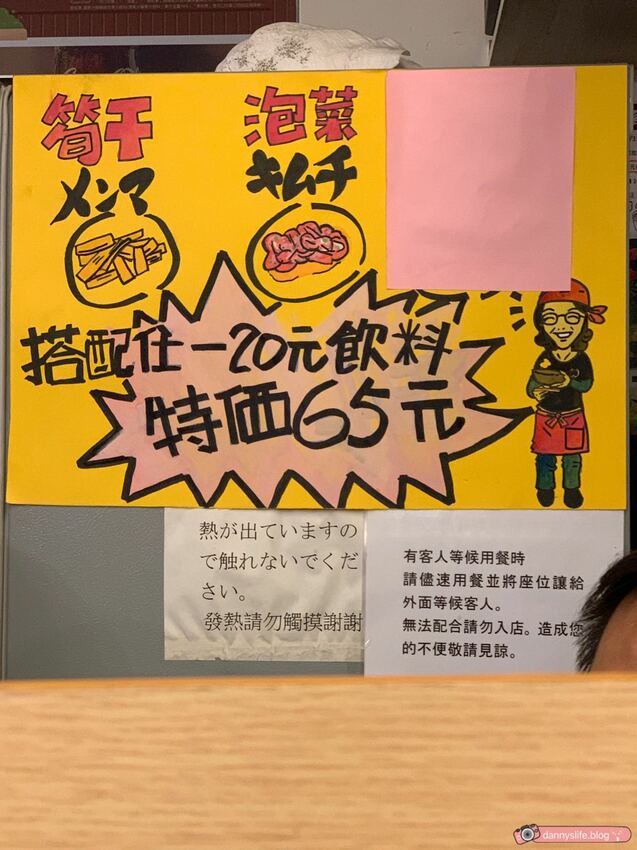 筍干
泡菜
メンマ
キムチ
搭配任一20元飲料
特価65元
熱が出ていますの
で触れないでくだ
さい。
發熱請勿觸摸謝謝
有客人等候用餐時
請儘速用餐並將座位讓給
外面等候客人。
無法配合請勿入店。造成您
的不便敬請見諒。
dannyslife.blog